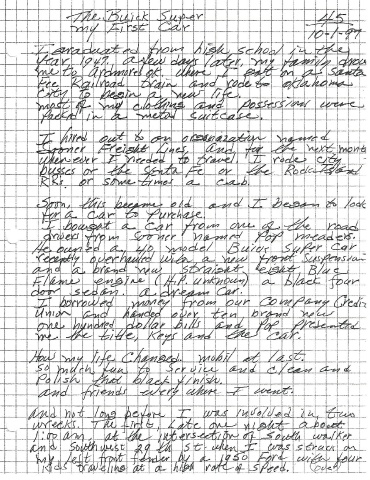 The Buick Super
My First Car
45
10-1-97
I graduated from high school in the
Year, 1947. A few days later, my family drove
me to Ardmore OK. where I got on a Santa
Fee Railroad train and rode to Oklahoma
City to begin a new life.
most of my clothing and possessions were
packed in a metal suitcase.
I hired out to an organization named
Sooner Freight Lines and for the next months
whenever I needed to travel I rode city
busses or the Santa Fe or the Rock Island
RRs. or sometimes a cab.
Soon, this became old and I began to look
for a car to purchase.
I bought a car from one of the road
drivers from Sooner named Pop Meaders.
He owned a 40 model Buick Super Car
recently overhauled with a new front suspension
and a brand new straight eight Blue
Flame engine (H.P. unknown) a black four
door sedan. a dream car.
I borrowed money from our company Credit
Union and handed over ten brand new
one hundred dollar bills and Pop presented
me the title, keys and the car.
How my life changed. mobil at last.
so much fun to service and clean and
Polish that black finish.
and friends every where I went.
and not long before I was involved in two
wrecks. The first, late one night about
1:00 am at the intersection of South Walker
and Southwest 29th St. when I was struck on
my left front fender by a 1950 Ford with four
kids traveling at a high rate of speed. (over)